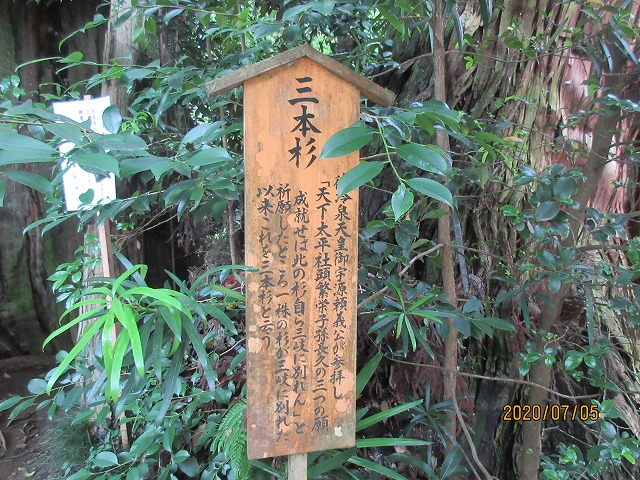 三本杉
後冷泉天皇御宇源頼義公が参拝し
「天下太平社頭繁栄子孫長久の三つの願
成就せば此の杉自ら三岐に別れん」と
祈願したところ一株の杉が三岐に別れた
以来これを三本杉と云う
2020/07/05